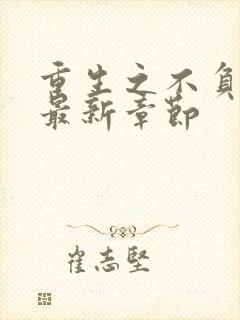 重生之不负
最新章节
崔志坚